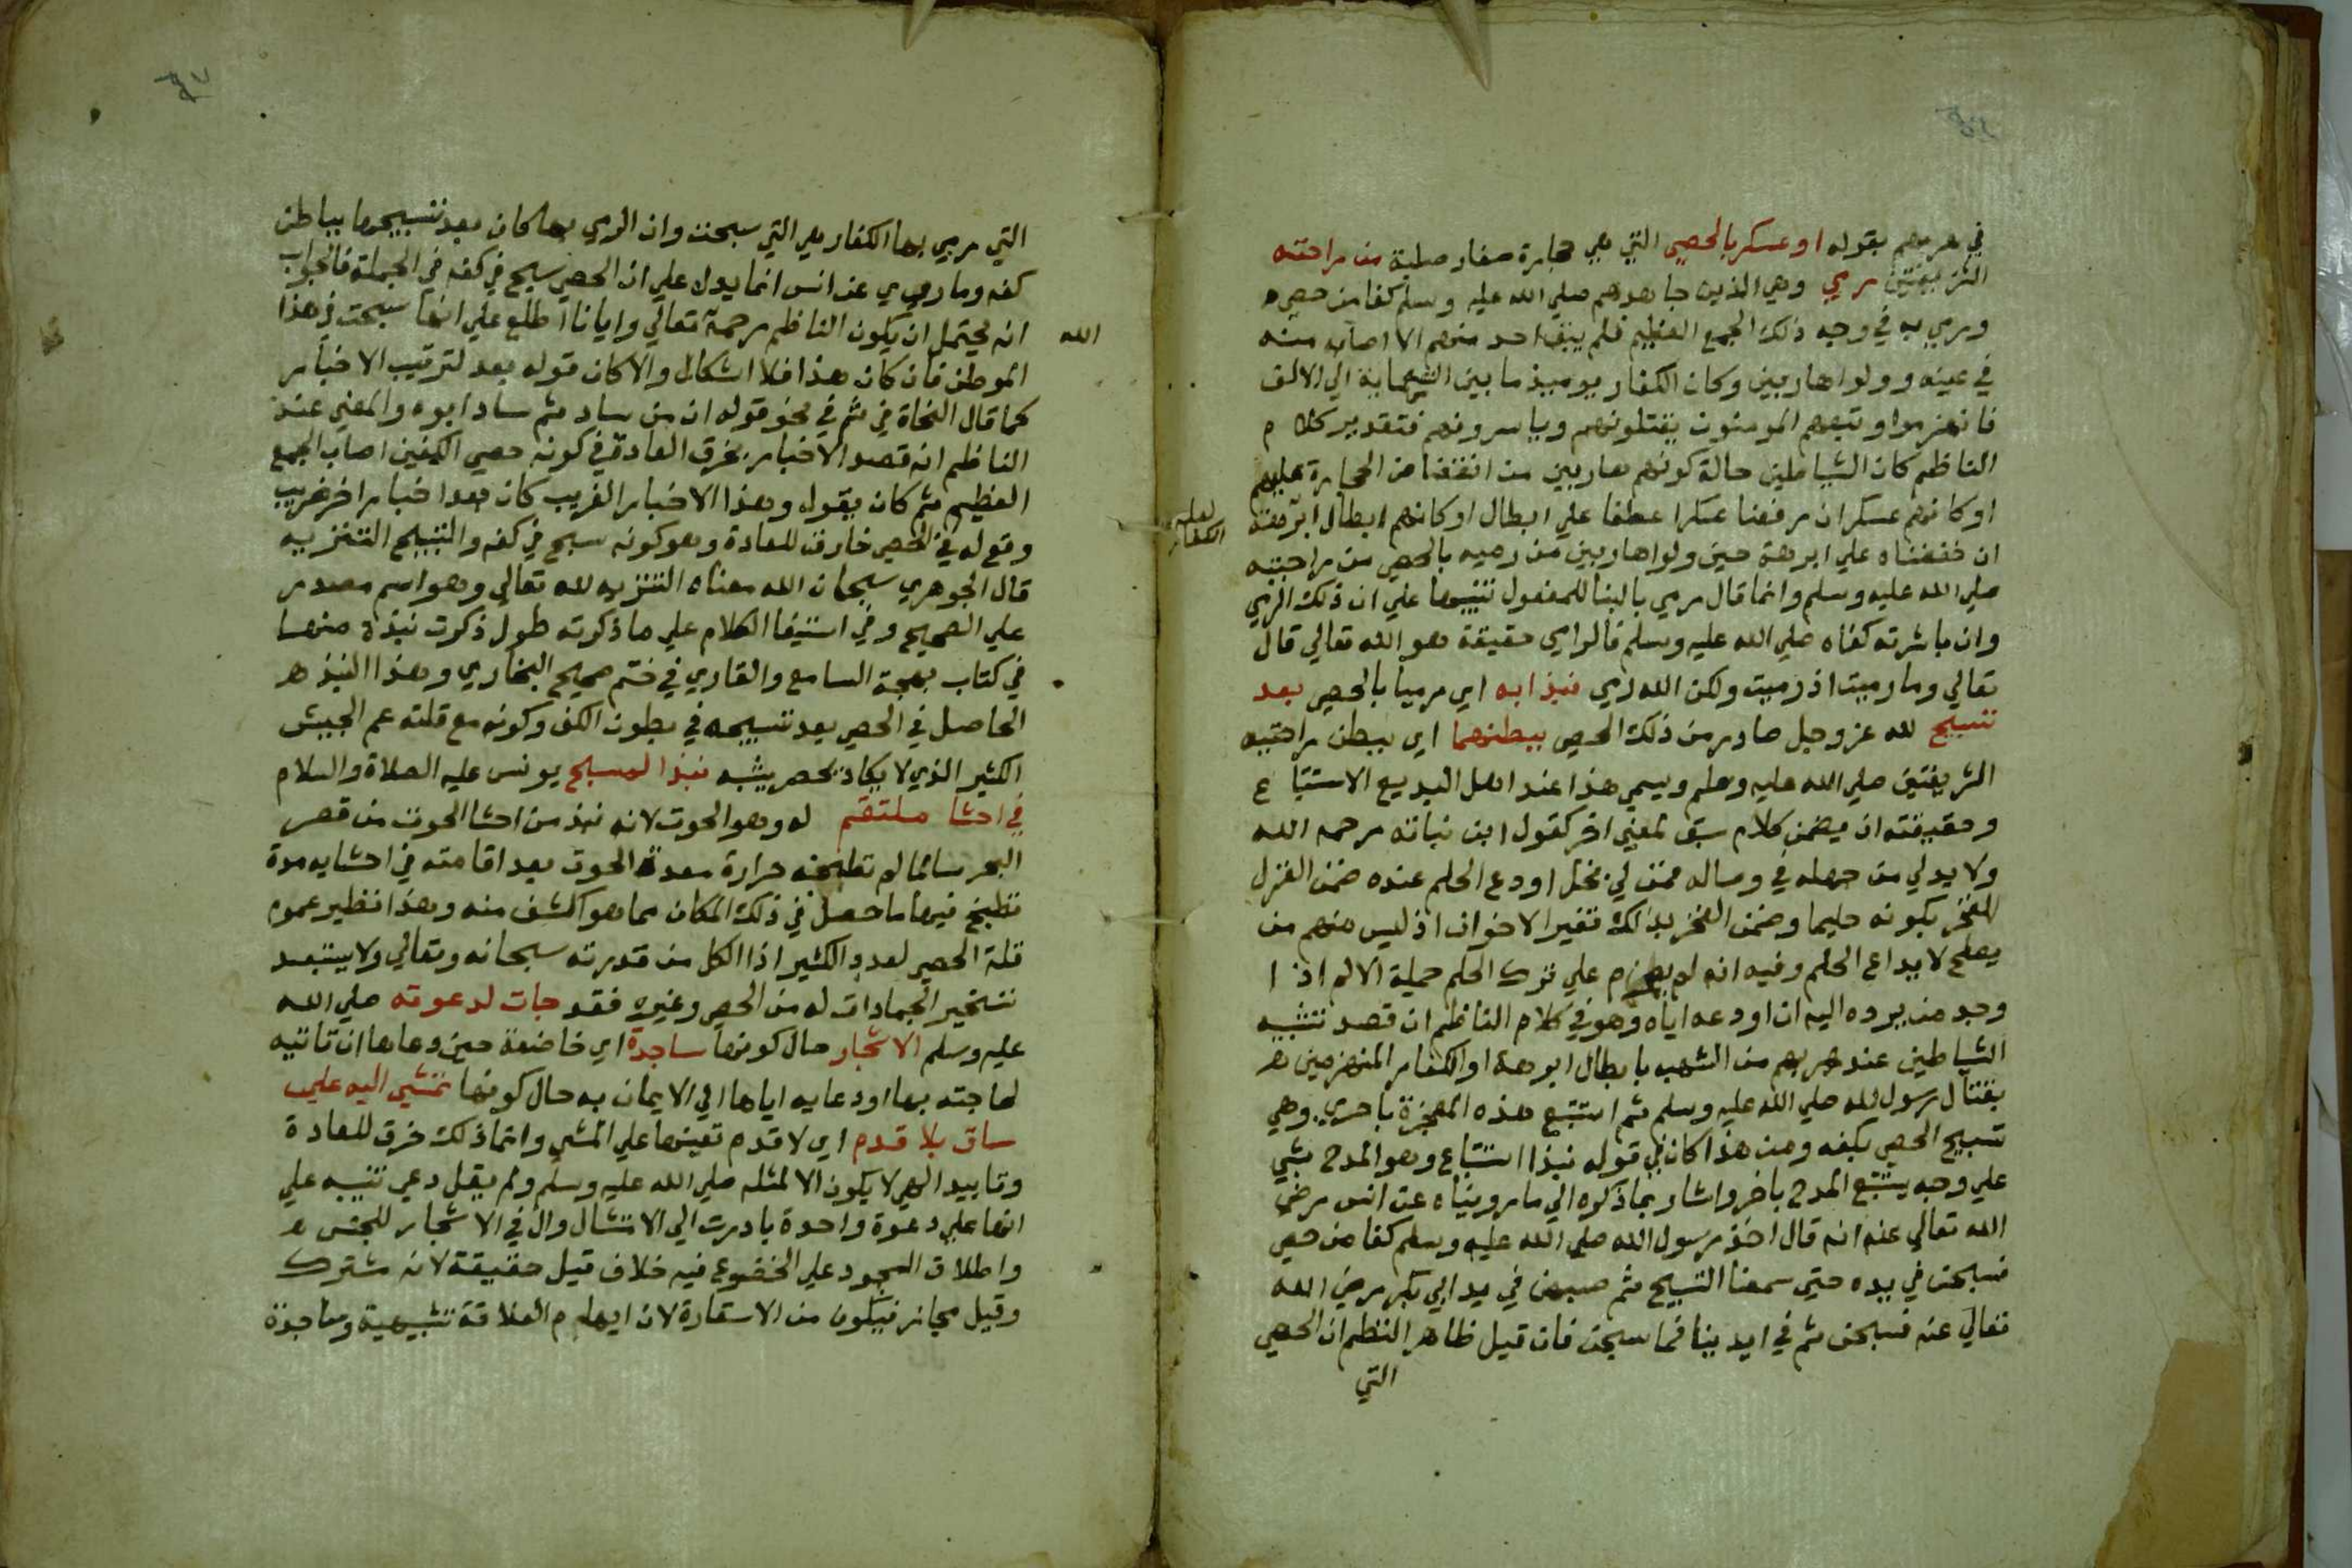 في هربهم بقوله او عسكر بالحصي التي هي حجارة صغار صلبة من راحته
الشريفتين رمي وهي الذين جاهدهم صلي الله عليه وسلم كفا من حصي
ورمي به في وجه ذلك الجمع العظيم فلم يبق احد منهم الا اصاب منه
في عينه وولوا هاربين وكان الكفار يوميذ ما بين التسعماية الي الالف
فانهزموا وتبعهم المومنون يقتلونهم وياسرونهم فتقدير كلام
الناظم كان الشياطين حالة كونهم هاربين من انقضاض الحجارة عليهم
اوكانهم عسكر ان رفعنا عسكرا عطفا علي ابطال اوكانهم ابطال ابرهة
لعله
الكفار
ان خفضناه علي ابرهة حين ولوا هاربين من رميه بالحصي من راحتيه
صلي الله عليه وسلم وانما قال رمي بالبنا للمفعول تنبيها علي ان ذلك الرمي
وان باشرته كفاه صلي الله عليه وسلم فالرامي حقيقة هو الله تعالي قال
تعالي وما رميت اذ رميت ولكن الله رمي نبذا به اي رميا بالحصي بعد
تسبيح لله عز وجل صادر من ذلك الحصي ببطنهما اي ببطن راحتيه
الشريفتين صلي الله عليه وسلم ويسمي هذا عند اهل البديع الاستتباع
وحقيقته ان يضمن كلام سبق لمعني اخر كقول ابن نباته رحمه الله
ولا بد لي من جهله في وصاله فمن لي بخل اودع الحلم عنده ضمن الغزل
الفخر بكونه حليما وضمن الفخر بذلك تغير الاخوان اذ ليس منهم من
يصلح لايداع الحلم وفيه انه لم يعزم علي ترك الحلم جملة الا له اذا
وجد من يرده اليه ان اودعه اياه وهو في كلام الناظم ان قصد تشبيه
الشياطين عند هربهم من الشهب بابطال ابرهة او الكفار المنهزمين
بقتال رسول الله صلي الله عليه وسلم ثم استتبع هذه المعجزة باخري وهي
تسبيح الحصي بكفه ومن هذا كان في قوله نبذا استتباع وهو المدح بشي
علي وجه يستتبع المدح باخر واشار بما ذكره الي ما رويناه عن انس رضي
الله تعالي عنه انه قال اخذ رسول الله صلي الله عليه وسلم كفا من حصي
فسبحن في يده حتي سمعنا التسبيح ثم صبهن في يد ابي بكر رضي الله
تعالي عنه فسبحن ثم في ايدينا فما سبحن فان قيل ظاهر النظم ان الحصي
التي
التي رمي بها الكفار هي التي سبحت وان الرمي بها كان بعد تسبيحها بباطن
كفه وما روي عن انس انما يدل علي ان الحصي سبح في كفه في الجملة فالجواب
انه يحتمل ان يكون الناظم رحمة تعالي وايانا اطلع علي انها سبحت في هذا
الله
الموطن فان كان هذا فلا اشكال والا كان قوله بعد لترتيب الاخبار
كما قال النحاة في ثم في نحو قوله ان من ساد ثم ساد ابوه والمعني عند
الناظم انه قصد الاخبار بخرق العادة في كونه حصي الكفين اصاب الجمع
العظيم ثم كان يقول وهذا الاخبار الغريب كان بعد اخبار اخر غريب
وقع له في الحصي خارق للعادة وهو كونه سبح في كفه والتسبيح التنزيه
قال الجوهري سبحان الله معناه التنزيه لله تعالي وهو اسم مصدر
علي الصحيح وفي استيفا الكلام علي ما ذكرته طول ذكرت نبذة منها
في كتاب بهجة السامع والقاري في ختم صحيح البخاري وهذا النبذ
الحاصل في الحصي بعد تسبيحه في بطون الكف وكونه مع قلته عم الجيش
الكثير الذي لا يكاد يحصر يشبه نبذ المسبح يونس عليه الصلاة والسلام
في احشا ملتقم له وهو الحوت لانه نبذ من احشا الحوت من قصر
البحر سالما لم تطبخه حرارة معدة الحوت بعد اقامته في احشايه مدة
تطبخ فيها ما حصل في ذلك المكان مما هو اكشف منه وهذا نظير عموم
قلة الحصي لعدو الكثير اذ الكل من قدرته سبحانه وتعالي ولا يستبعد
تسخير الجمادات له من الحصي وغيره فقد جات لدعوته صلي الله
عليه وسلم الاشجار حال كونها ساجدة اي خاضعة حين دعاها ان تاتيه
لحاجته بها او دعايه اياها الي الايمان به حال كونها تمشي اليه علي
ساق بلا قدم اي لا قدم تعينها علي المشي وانما ذلك خرق للعادة
وتاييد الهي لا يكون الا لمثله صلي الله عليه وسلم ولم يقل دعي تنبيه علي
انها علي دعوة واحدة بادرت الي الامتثال وال في الاشجار للجنس
واطلاق السجود علي الخضوع فيه خلاف قيل حقيقة لانه مشترك
وقيل مجاز فيكون من الاستعارة لان ايهام العلاقة تشبيهية وساجدة